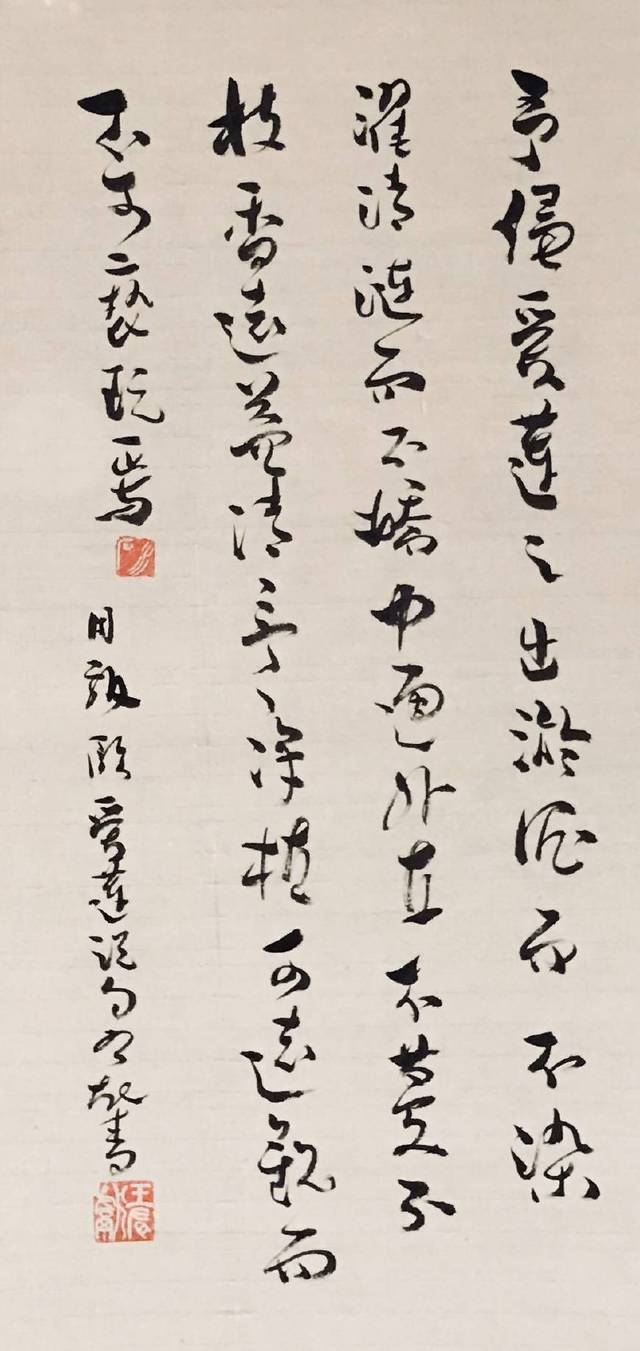 予偏爱蓮之出淤泥而不染
濯清漣而不撓中通外直不蔓不
枝香遠益清亭亭净植可遠觀而
不可褻玩焉
周敦頤愛蓮説句 書